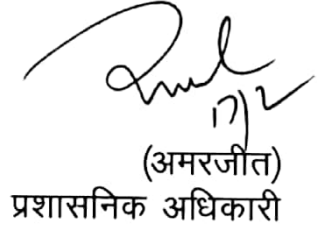 17/2
(अमरजीत)
प्रशासनिक अधिकारी